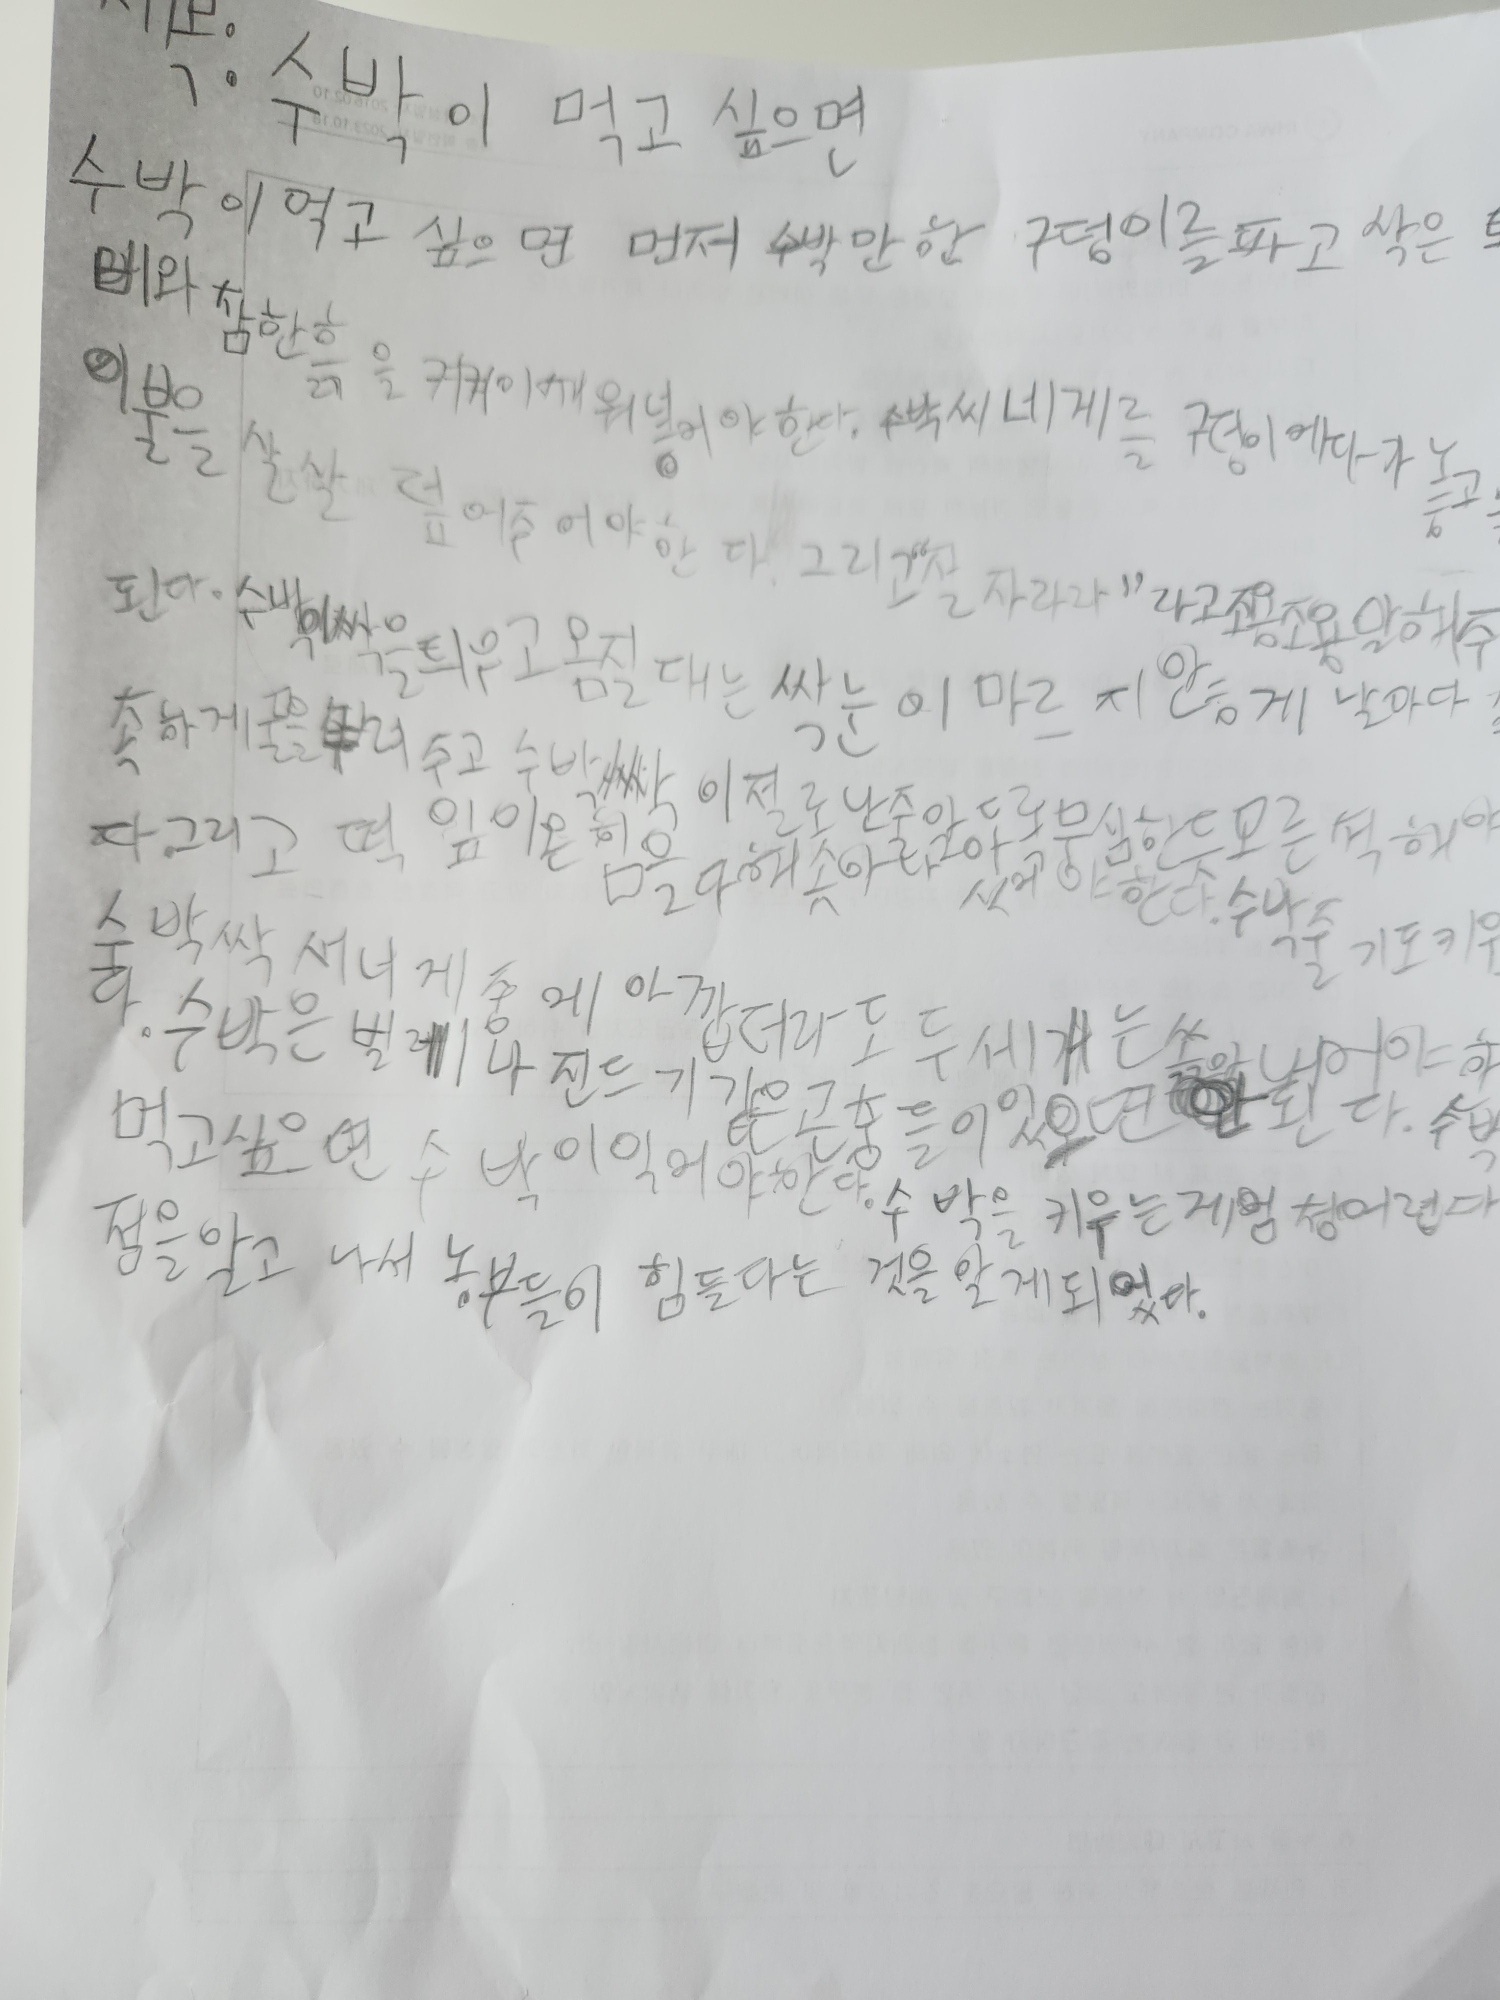 제목: 수박이 먹고 싶으면
수박이 먹고 싶으면 먼저 수박만한 구덩이를 파고 삭은
베와 참한흙을 켜켜이 채워 넣어야 한다. 수박씨 네게를 구덩이에다가 놓고
이불을 살살 덮어주어야 한다. 그리고 "잘 자라라" 라고 조용조용 말해주
된다. 수박이 싹을 틔우고 옴질 대는 싹눈이 마르지 안흥게 날마다
촉하게 물을 뿌려 주고 수박싹이 절로 난줄 암도로 무심한 두 모른 척 해야
다. 그리고 떡잎이 온 힘을 다해 솟아
수박싹 서너게 중에 아깝더라도 두세개는 솎아 내어야 하
다. 수박은 벌레나 진드기 같은 곤충들이 있으면 안된다. 수박
먹고 싶으면 수박이 익어야 한다. 수박을 키우는게 엄청 어렵다
점을 알고 나서 농부들이 힘들다는 것을 알게되었다.